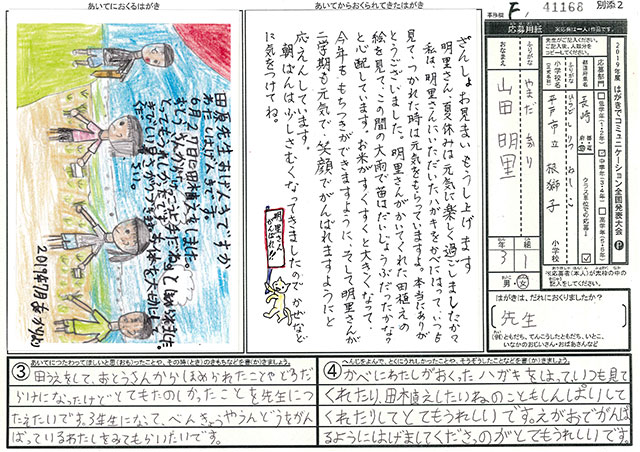 あいてにおくるはがき
田夏先生お元気ですか
6月27日に田植えをしました。
2019年7月 あかりより
あいてからおくられてきたはがき
ざんしょお見まいもうし上げます
明里さん、夏休みは元気に楽しく過ごしましたか?
私は、明里さんにいただいたハガキをかべにはって、いつも
見て、つかれた時は元気をもらっていますよ。本当にありが
とうございました。明里さんがかいてくれた田植えの
絵を見て、この間の大雨で苗はだいじょうぶだったかな?
と心配しています。お米がすくすくと大きくなって、
今年ももちつきができますように、そして、明里さんが
二学期も元気で、笑顔でがんばれますようにと
応えんしています。
朝ばんは少しさむくなってきましたのでかぜなど
に気をつけてね。
明里さん
がんばれ!!
事務局
F
41168
別添2
応募用紙
応募票は一人1作品です。
先生がご記入ください。
ご記入後、人数分を
コピーしてください。
2019年度 はがきでコミュニケーション全国発表大会
応募部門
低学年(1・2年)
中学年(3・4年)
高学年(5・6年)
都道府県名
長崎
クラス単位での応募
ふりがな
小学校名
(正式名称)
平戸市立 根獅子
小学校
ふりがな やまだ あかり
おなまえ
山田 明里
3年
1組
男・女
※応募者(本人)が太枠の中の
記入をしてください。
はがきは、だれにおくりましたか?
先生
(例)ともだち、てんこうしたともだち、いとこ、
いなかのおじいさん・おばあさんなど
③ あいてにつたわってほしいと思(おも)ったことや、その時(とき)のきもちなどを書(か)きましょう。
田うえをして、おとうさんからほめられたことやどろだ
らけになったけどとてもたのしかったことを先生につ
たえたいです。3年生になって、べんきょうやうんどうをがん
ばっているわたしをみてもらいたいです。
④ へんじをよんで、とくにうれしかったことや、そうぞうしたことなどを書(か)きましょう。
かべにわたしがおくったハガキをはって、いつも見て
くれたり、田植えしたいねのこともしんぱいして
くれたりしてとてもうれしいです。えがおでがんばれ
るようにはげましてくださったのがとてもうれしいです。